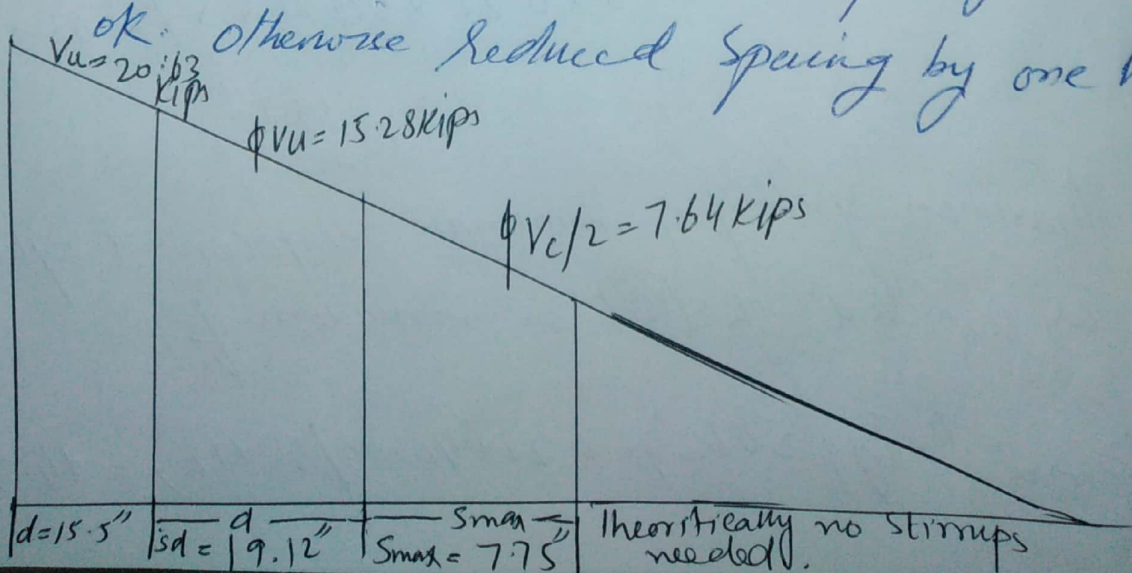 ok. Otherwise reduced Spacing by one
Vu = 20.63
kips
ϕVu = 15.28 Kips
ϕVc/2 = 7.64 Kips
d=15.5" sd = 19.12" Smax Theoritically no Stirrups
Smax = 7.75" needed.